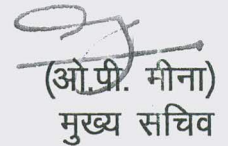 (ओ.पी. मीना)
मुख्य सचिव